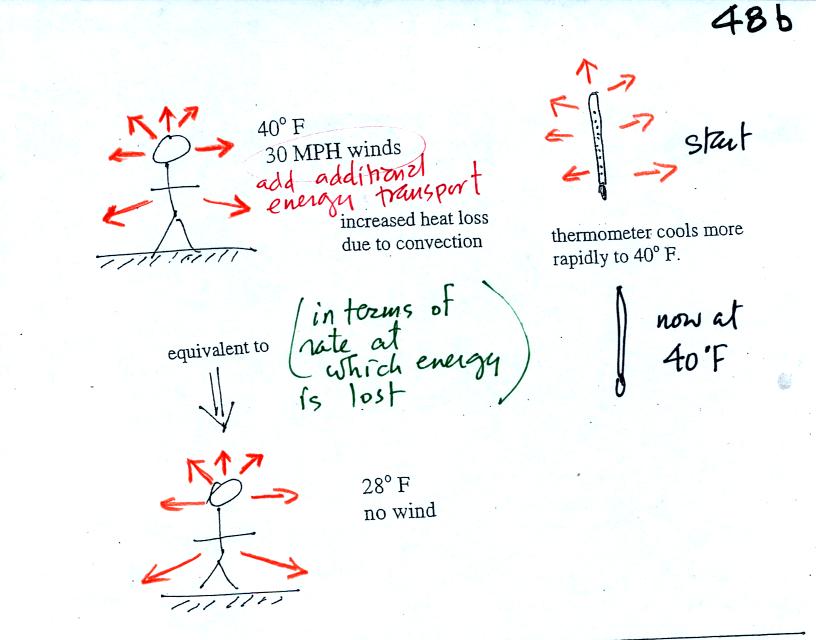 48b
40° F
30 MPH winds
add additional
energy transport
increased heat loss
due to convection
start
thermometer cools more
rapidly to 40° F.
now at
40°F
equivalent to
(in terms of
rate at
which energy
is lost)
28° F
no wind